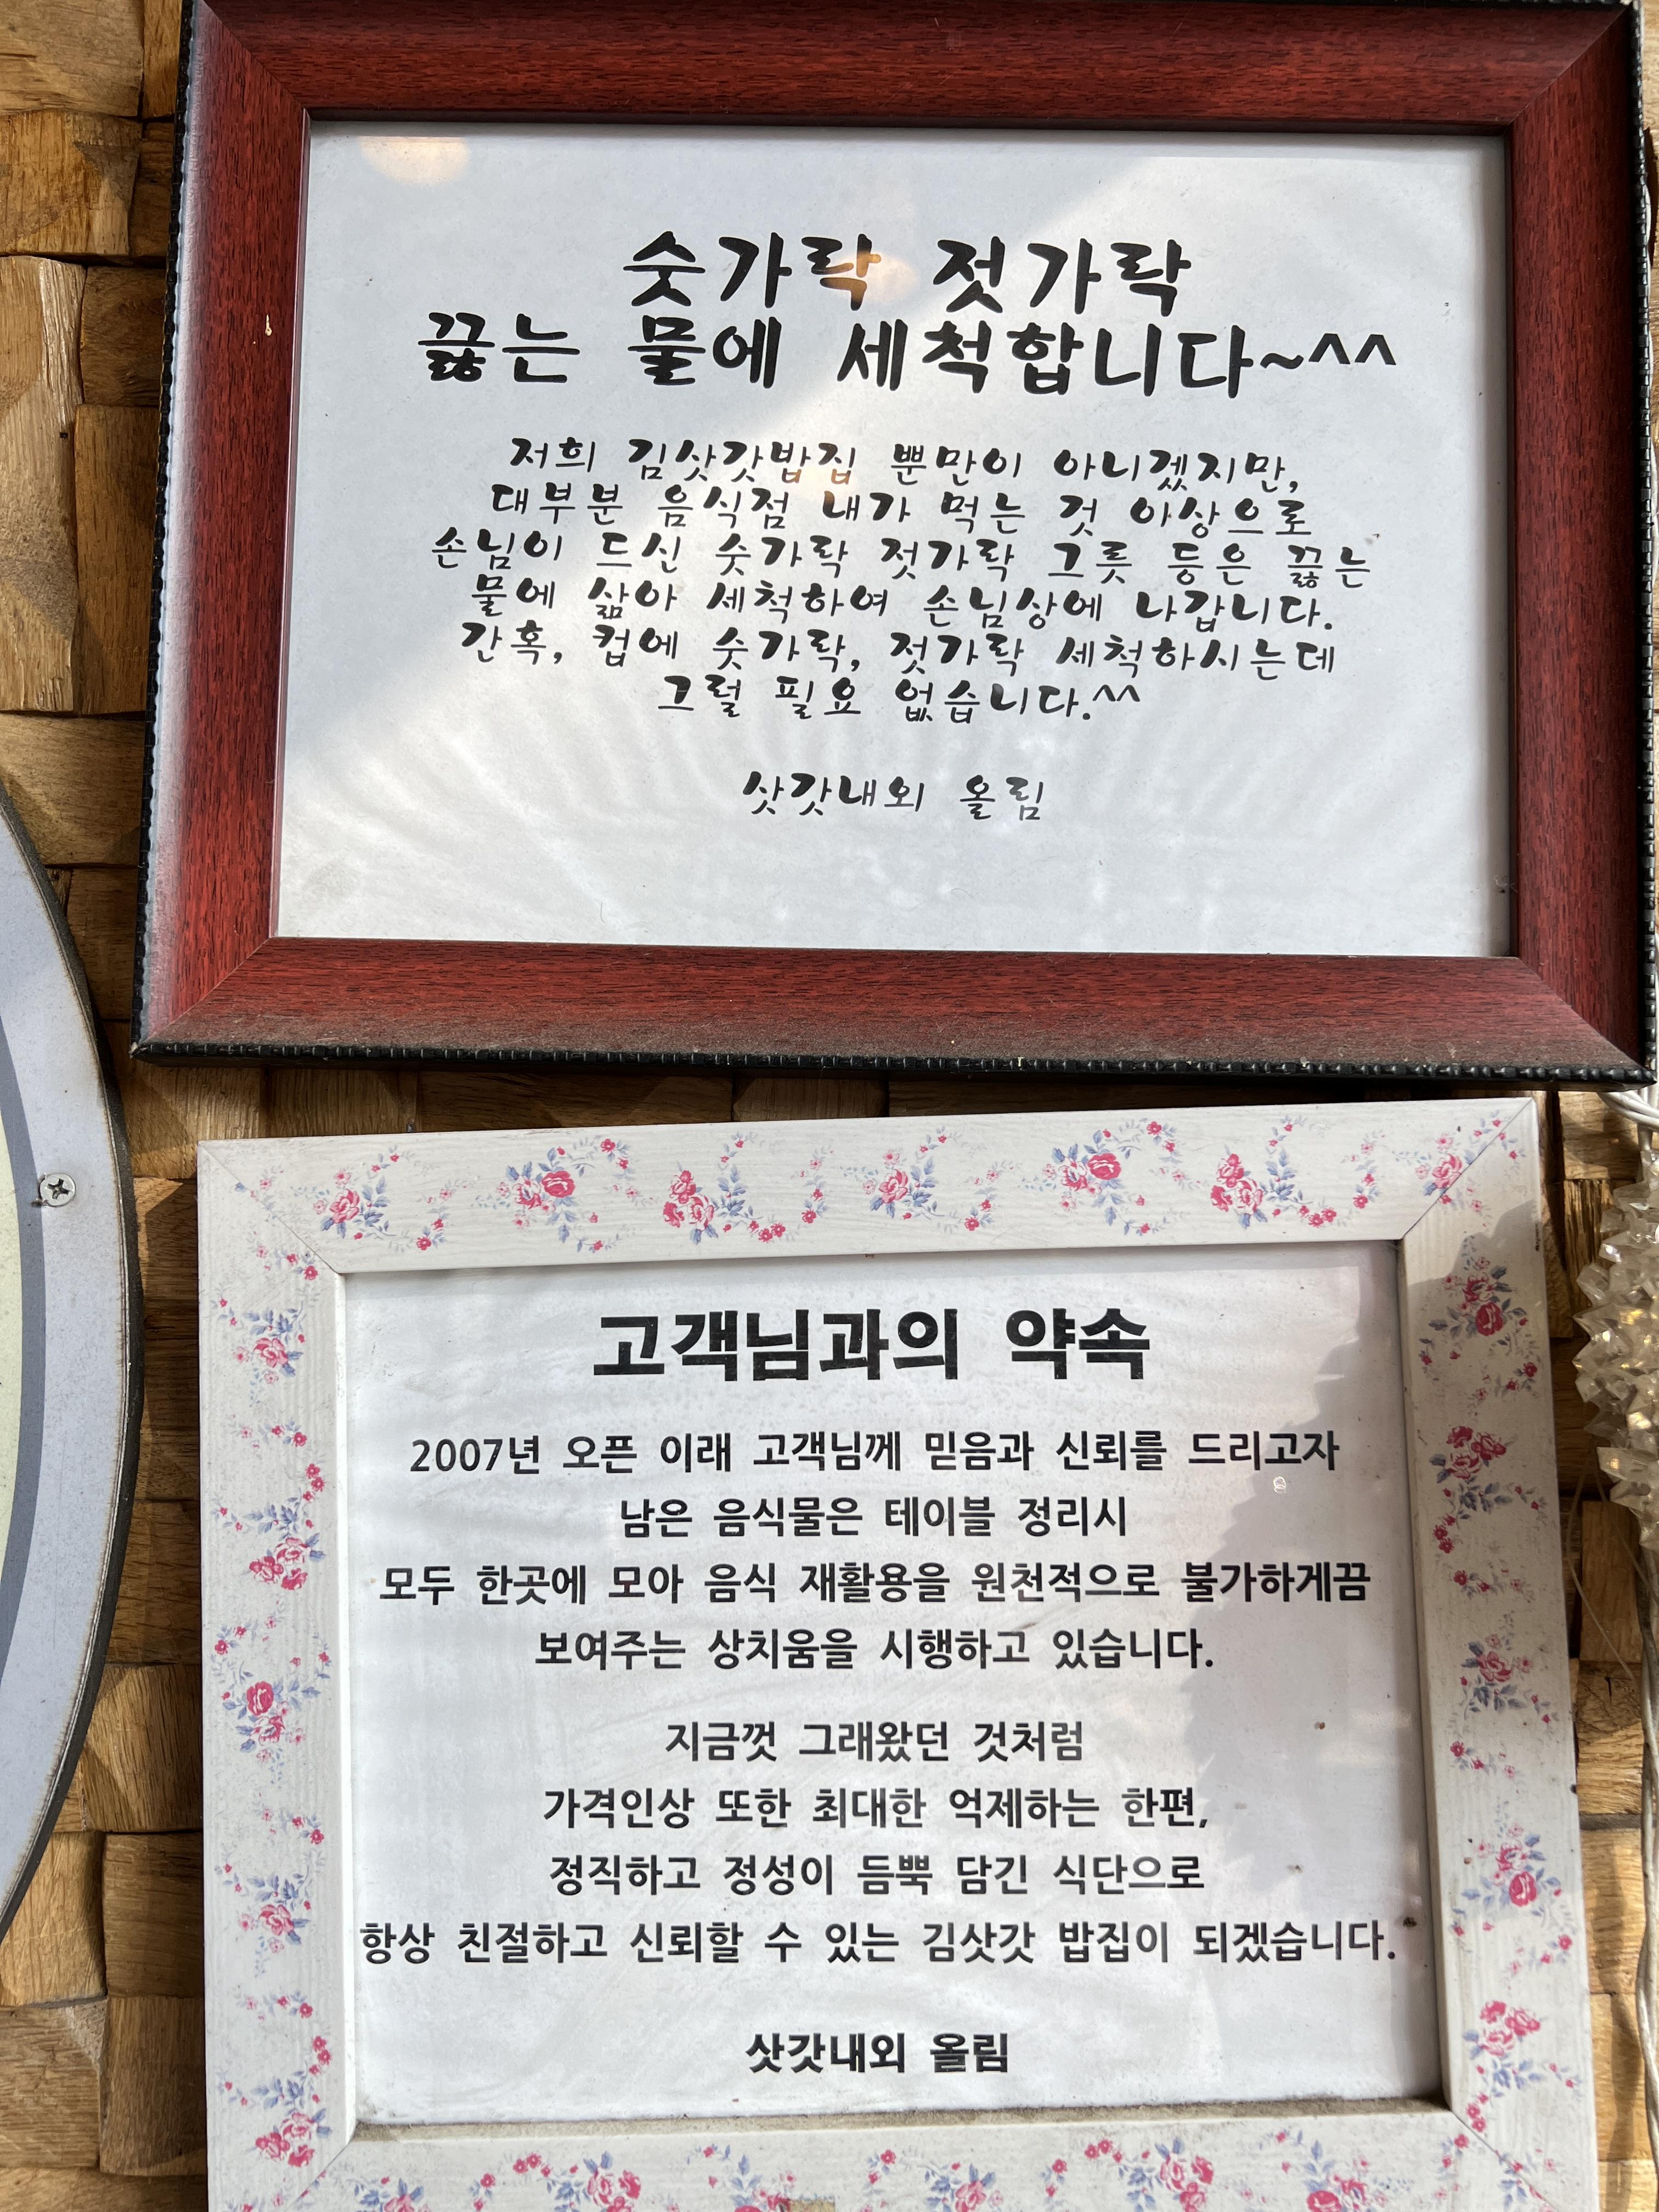 숫가락 젓가락
끓는 물에 세척합니다~^^
저희 김삿갓밥집 뿐만이 아니겠지만,
대부분 음식점 내가 먹는 것 이상으로
손님이 드신 숫가락 젓가락 그릇 등은 끓는
물에 삶아 세척하여 손님상에 나갑니다.
간혹, 컵에 숫가락, 젓가락 세척하시는데
그럴 필요 없습니다.^^
삿갓내외 올림
고객님과의 약속
2007년 오픈 이래 고객님께 믿음과 신뢰를 드리고자
남은 음식물은 테이블 정리시
모두 한곳에 모아 음식 재활용을 원천적으로 불가하게끔
보여주는 상치움을 시행하고 있습니다.
지금껏 그래왔던 것처럼
가격인상 또한 최대한 억제하는 한편,
정직하고 정성이 듬뿍 담긴 식단으로
항상 친절하고 신뢰할 수 있는 김삿갓 밥집이 되겠습니다.
삿갓내외 올림